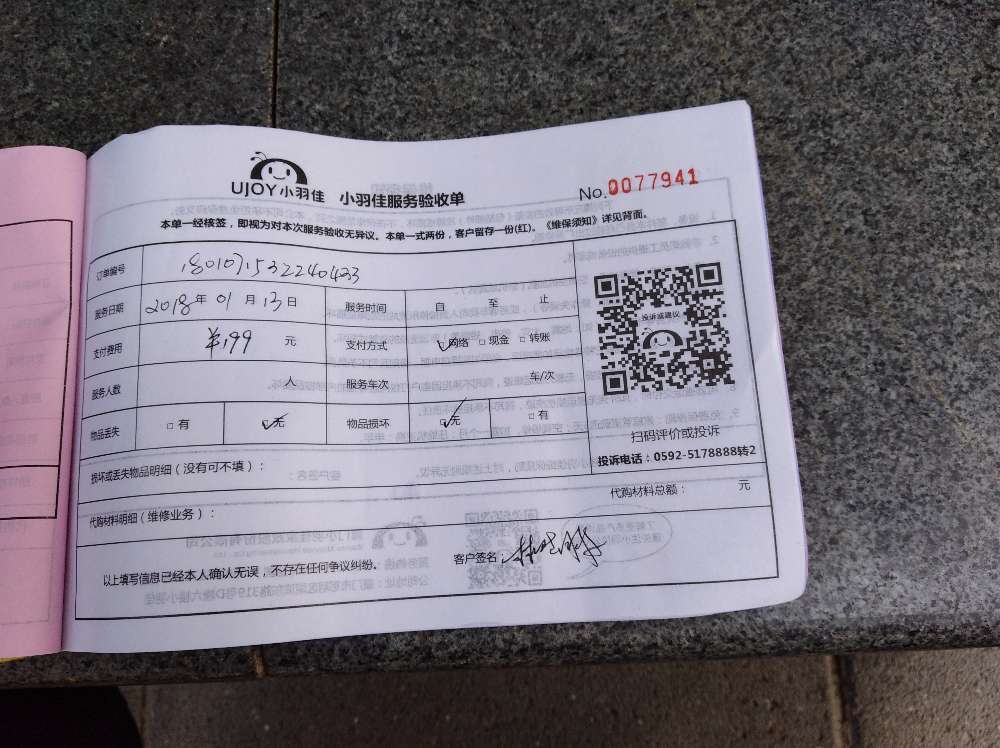 UJOY小羽佳 小羽佳服务验收单 No.0077941
本单一经核签，即视为对本次服务验收无异议。本单一式两份，客户留存一份(红)。《维保须知》详见背面。
订单编号 18010715322240433
服务日期 2018年01月13日 服务时间 自 至 止
投诉或建议
支付费用 ¥199 元 支付方式 ☑网络 □现金 □转账
服务人数 人 服务车次 车/次
物品丢失 □有 ☑无 物品损坏 ☑无 □有
扫码评价或投诉
投诉电话：0592-5178888转2
损坏或丢失物品明细（没有可不填）：
代购材料明细（维修业务）： 代购材料总额： 元
以上填写信息已经本人确认无误，不存在任何争议纠纷。 客户签名：